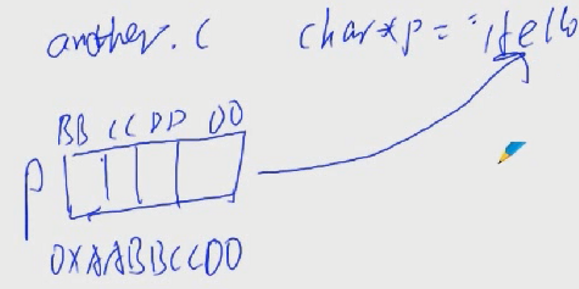 another.c char*p = "Hello
BB CC DD 00
p
0XAABBCCDD